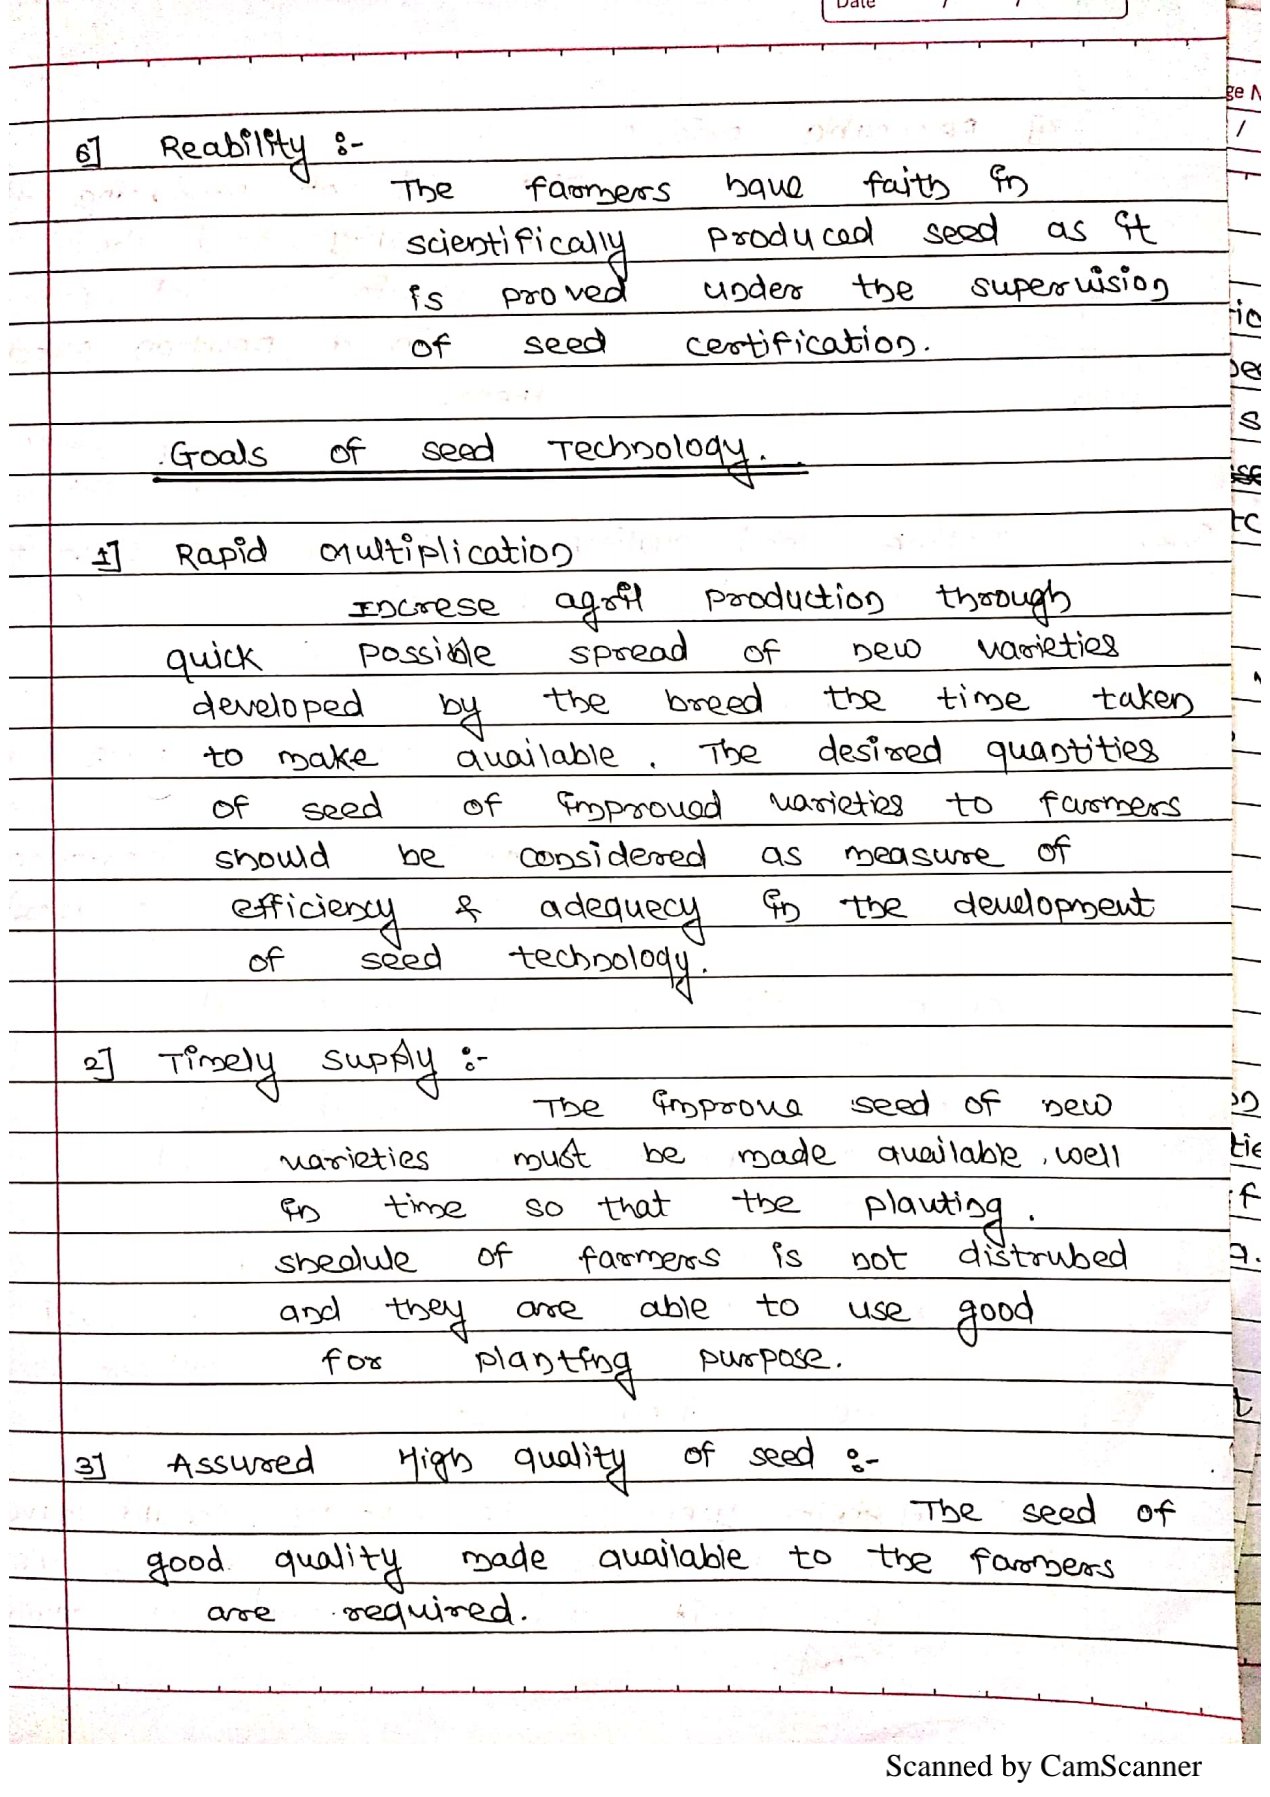 Date / /
ge N
/
6] Reability :-
The farmers have faith in
scientifically produced seed as it
is proved under the supervision
of seed certification.
Goals of seed Technology.
1] Rapid multiplication
Increse agril production through
quick possible spread of new varieties
developed by the breed the time taken
to make available. The desired quantities
of seed of improved varieties to farmers
should be considered as measure of
efficiency & adequecy in the development
of seed technology.
2] Timely supply :-
The improve seed of new
varieties must be made available, well
in time so that the planting.
shedule of farmers is not distrubed
and they are able to use good
for planting purpose.
3] Assured High quality of seed :-
The seed of
good quality made available to the farmers
are required.
Scanned by CamScanner